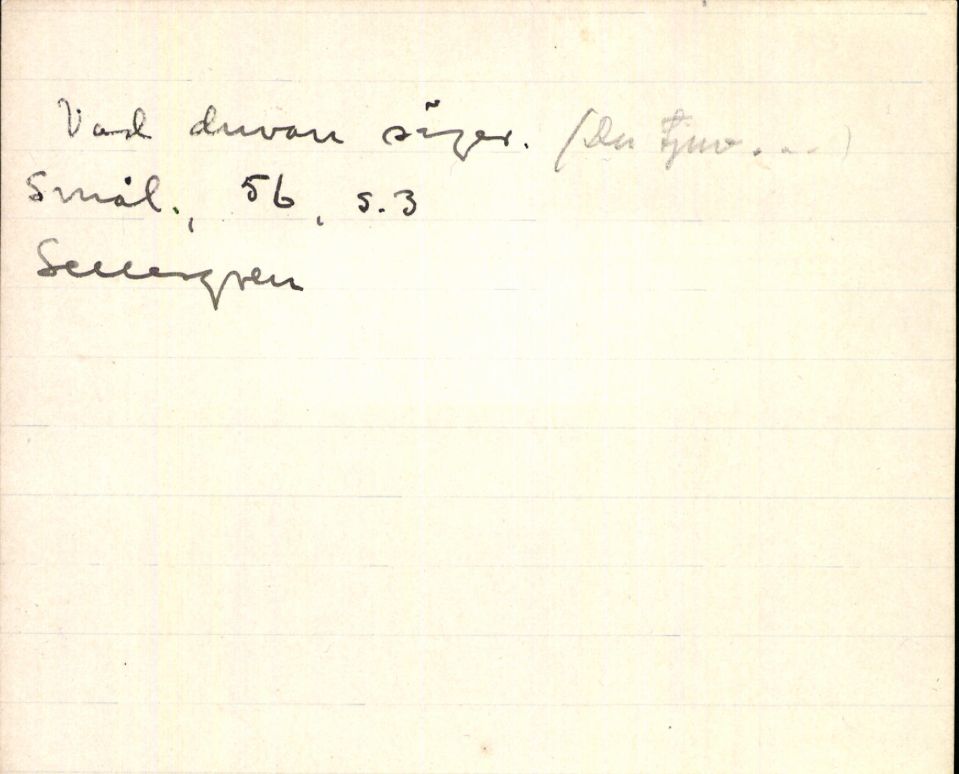 Vad duvan säger. (Du tjuv...)
Smål., 56, s.3
Sellergren